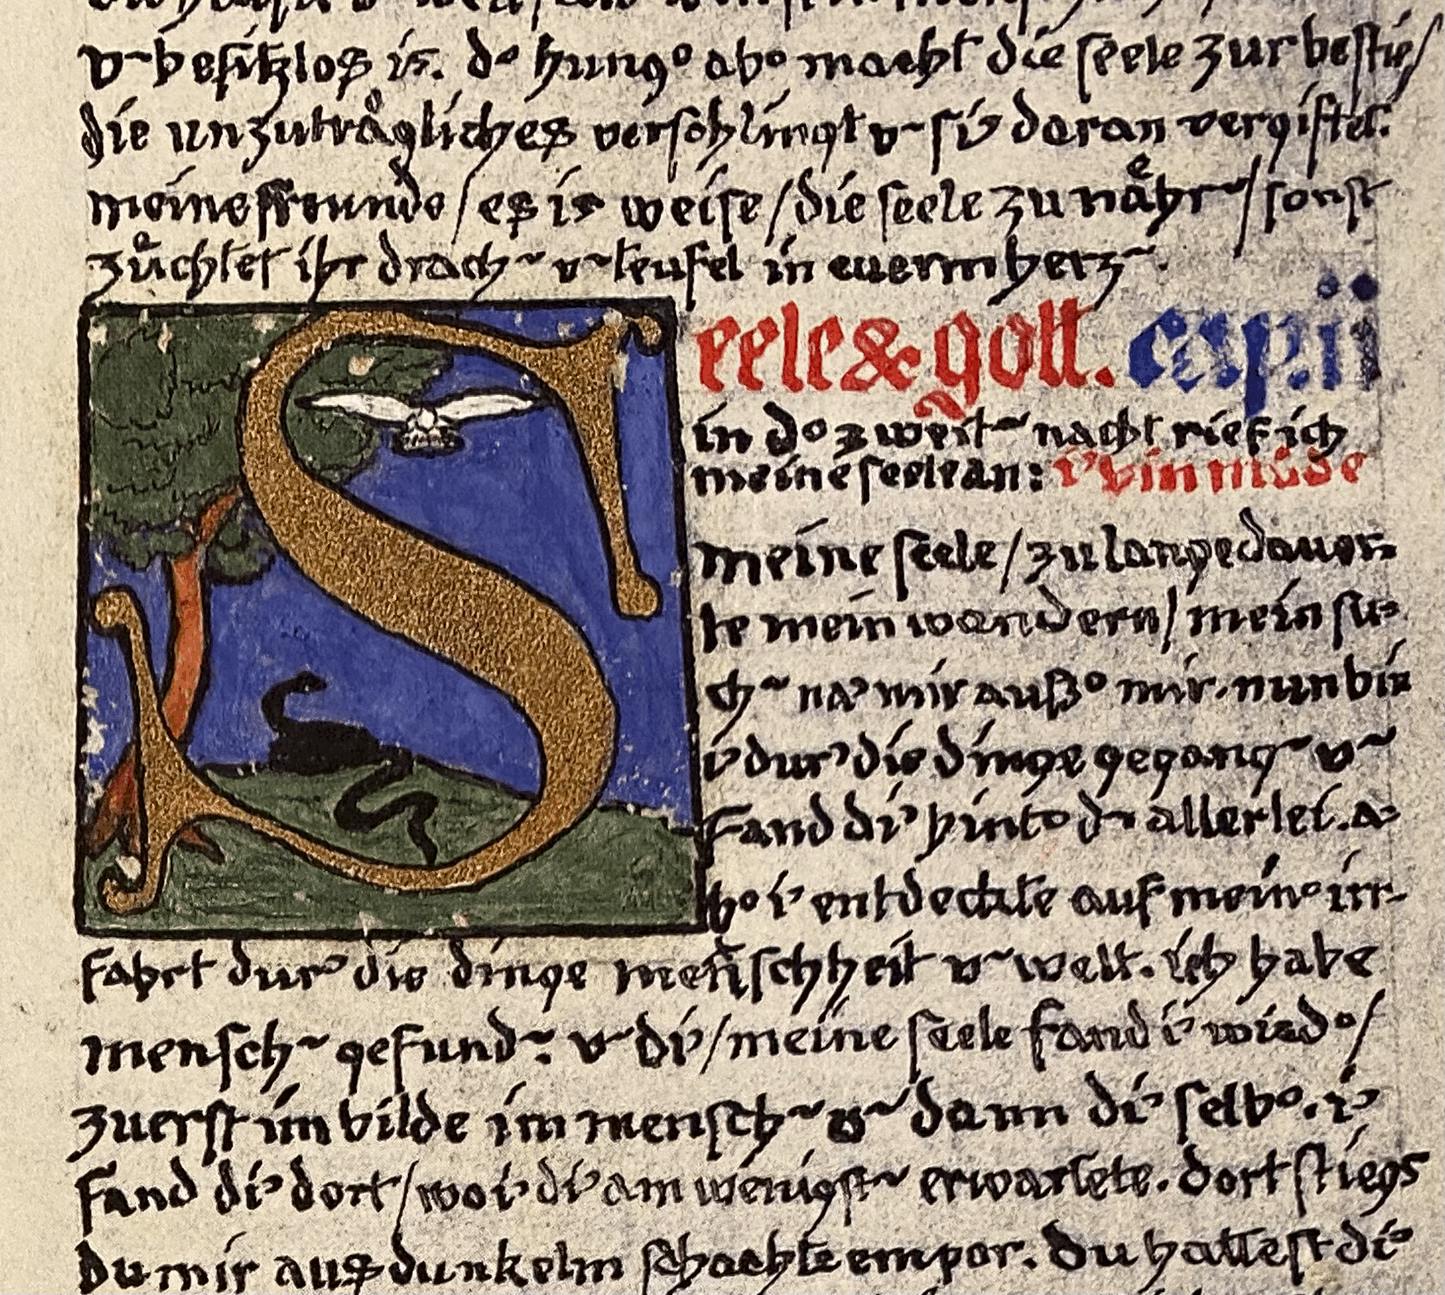 v~ besitzlos is. d° hung° ab° macht die seele zur bestie/
die unzuträgliches verschlingt v~ si' daran vergiftet.
meine freunde/es is weise/die seele zu nähr~/sonst
züchtet ihr drach~ v~ teufel in euerm herz~.
Seele & gott. cap. ii
in d° zweit~ nacht rief ich
meine seele an: i' bin müde
meine seele/zu lange dauer-
te mein wandern/mein su-
ch~ na' mir auß° mir. nun bin
i' dur' die dinge gegang~ v~
fand di' hint° d~ allerlei. a-
b° i' entdeckte auf mein° irr-
fahrt dur' die dinge menschheit v~ welt. ich habe
mensch~ gefund~. v~ di'/meine seele fand i' wied°/
zuerst im bilde im mensch~ v~ dann di' selb°. i'
fand di' dort/wo i' di' am wenigst~ erwartete. dort stiegs
du mir aus dunkelm schachte empor. du hattest di'